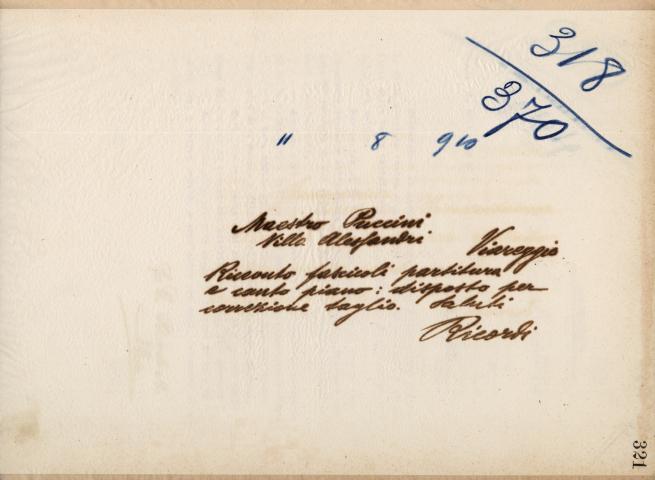 318
370
" 8 910
Maestro Puccini
Villa Alessandri Viareggio
Ricevuto fascicoli partitura
e canto piano: disposto per
correzione taglio. Saluti
Ricordi
321